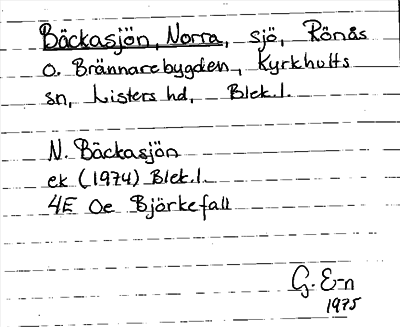 Bäckasjön, Norra, sjö, Rönås
o. Brännarebygden, Kyrkhults
sn, Listers hd, Blek.l.
N. Bäckasjön
ek (1974) Blek.l.
4E Oe Björkefall
G. E-n
1975